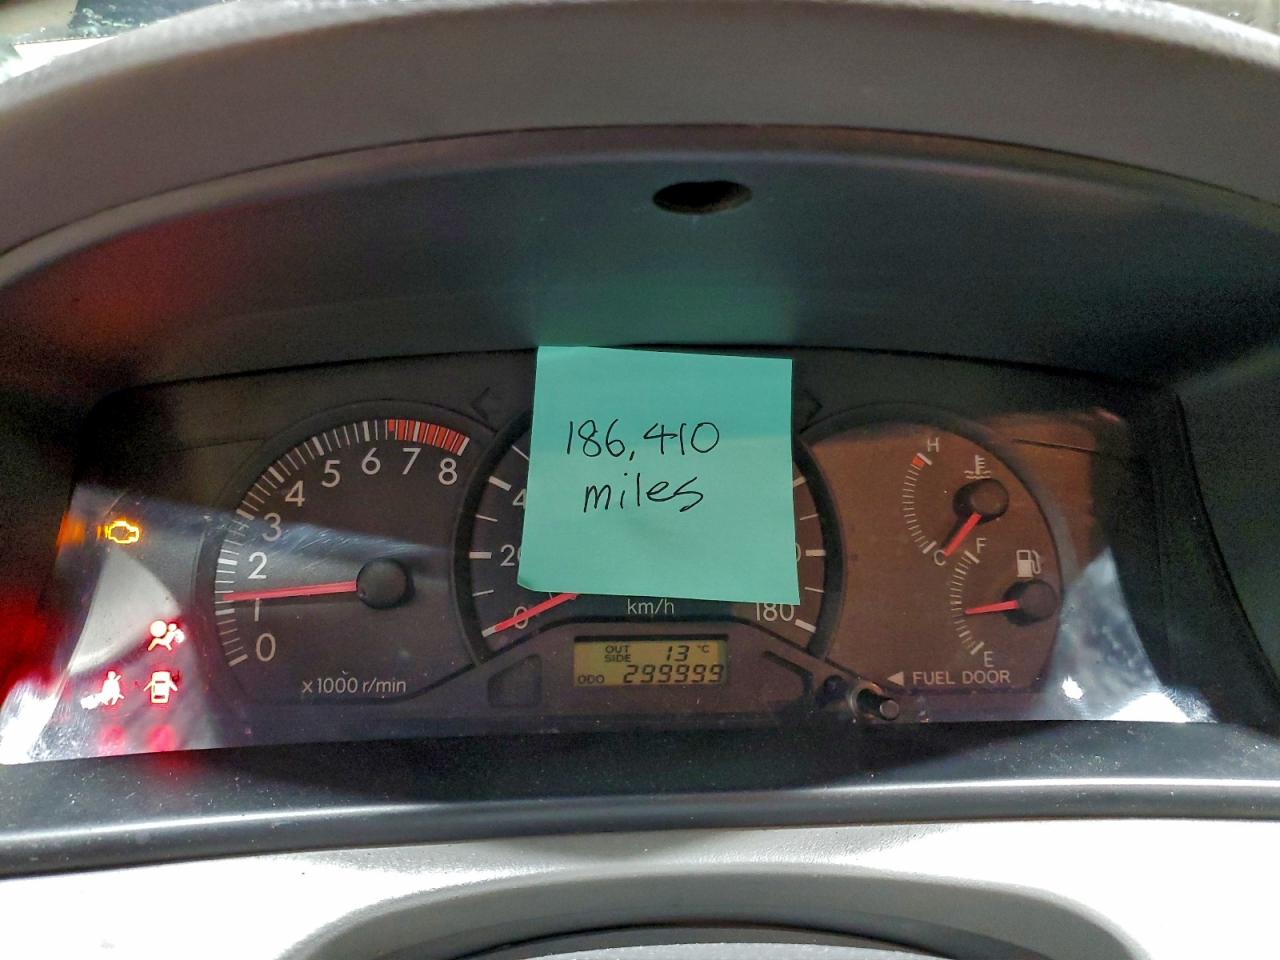 186,410
miles
0
1
2
3
4
5
6
7
8
x1000 r/min
0
20
4
180
km/h
OUT SIDE 13 °C
ODO 299999
H
C
F
E
◀ FUEL DOOR